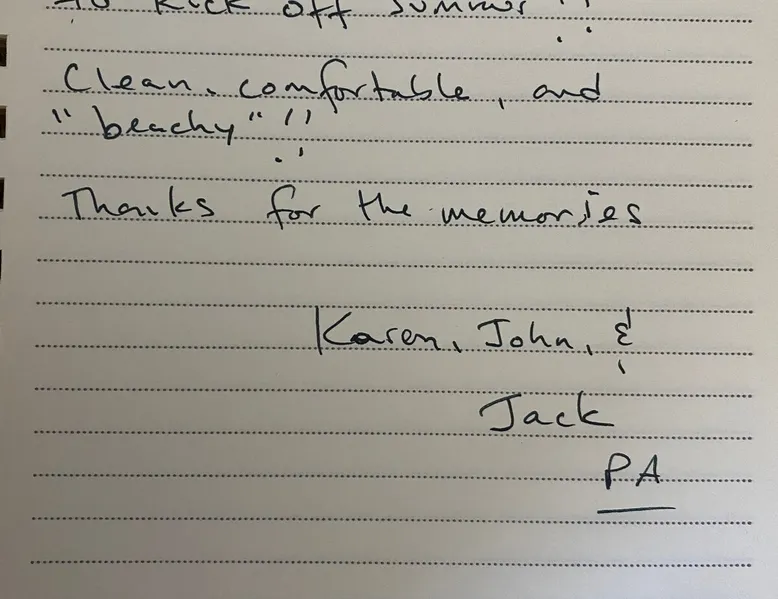 to kick off summer!!
Clean, comfortable, and
"beachy"!!
Thanks for the memories
Karen, John, &
Jack
PA